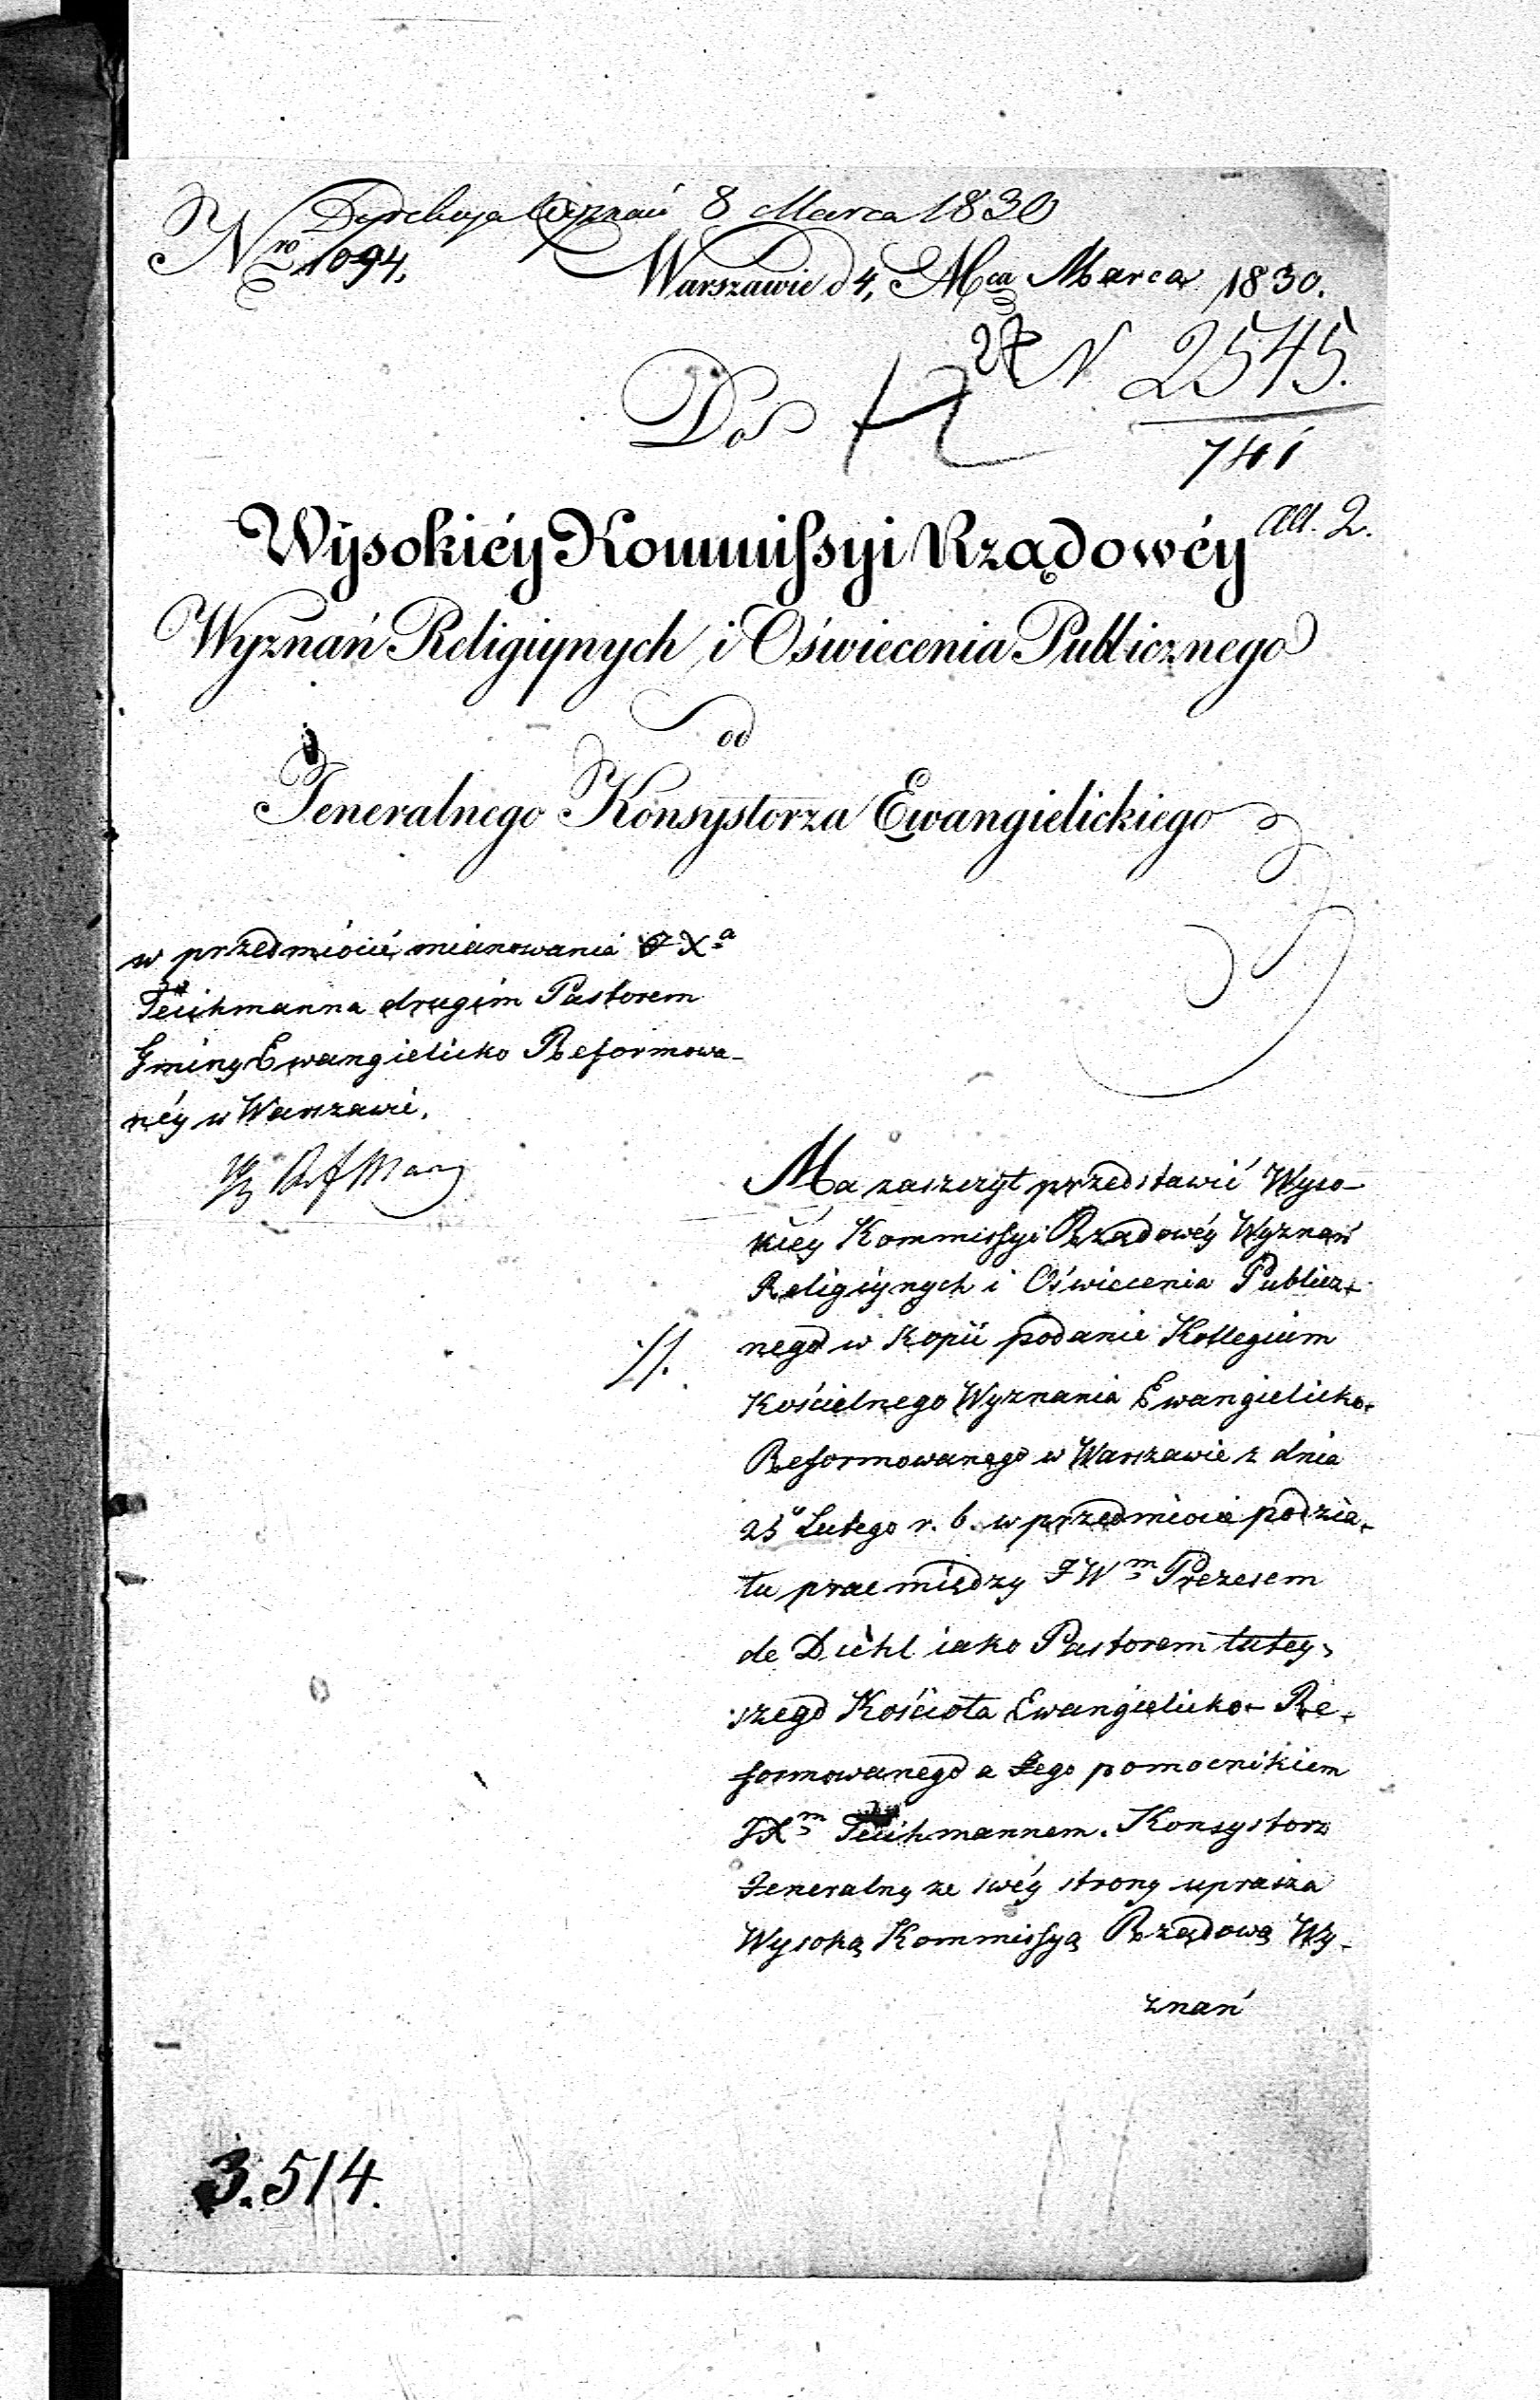 Dyrekcya Wyznań 8 Marca 1830
Nro 1094.
Warszawie d 4, Mca Marca 1830.
27 N 2545.
741
Do
All. 2.
Wysokiéy Kommissyi Rządowéy
Wyznań Religiynych i Oświecenia Publicznego
od
Jeneralnego Konsystorza Ewangielickiego
w przedmiocie mianowania JXa
Teichmanna drugim Pastorem
Gminy Ewangielicko Reformowa-
néy w Warszawie.
Ma zaszczyt przedstawić Wyso-
kiéy Kommissyi Rządowéy Wyznań
Religiynych i Oświecenia Publicz-
nego w kopii podanie Kollegium
//.
Kościelnego Wyznania Ewangielicko-
Reformowanego w Warszawie z dnia
25 Lutego r. b. w przedmiocie podzia-
łu prac między JWm Prezesem
de Diehl iako Pastorem tutey-
szego Kościoła Ewangielicko-Re-
formowanego a Jego pomocnikiem
JXm Teichmannem. Konsystorz
Jeneralny ze swéy strony uprasza
Wysoką Kommissyą Rządową Wy-
znań
3.514.